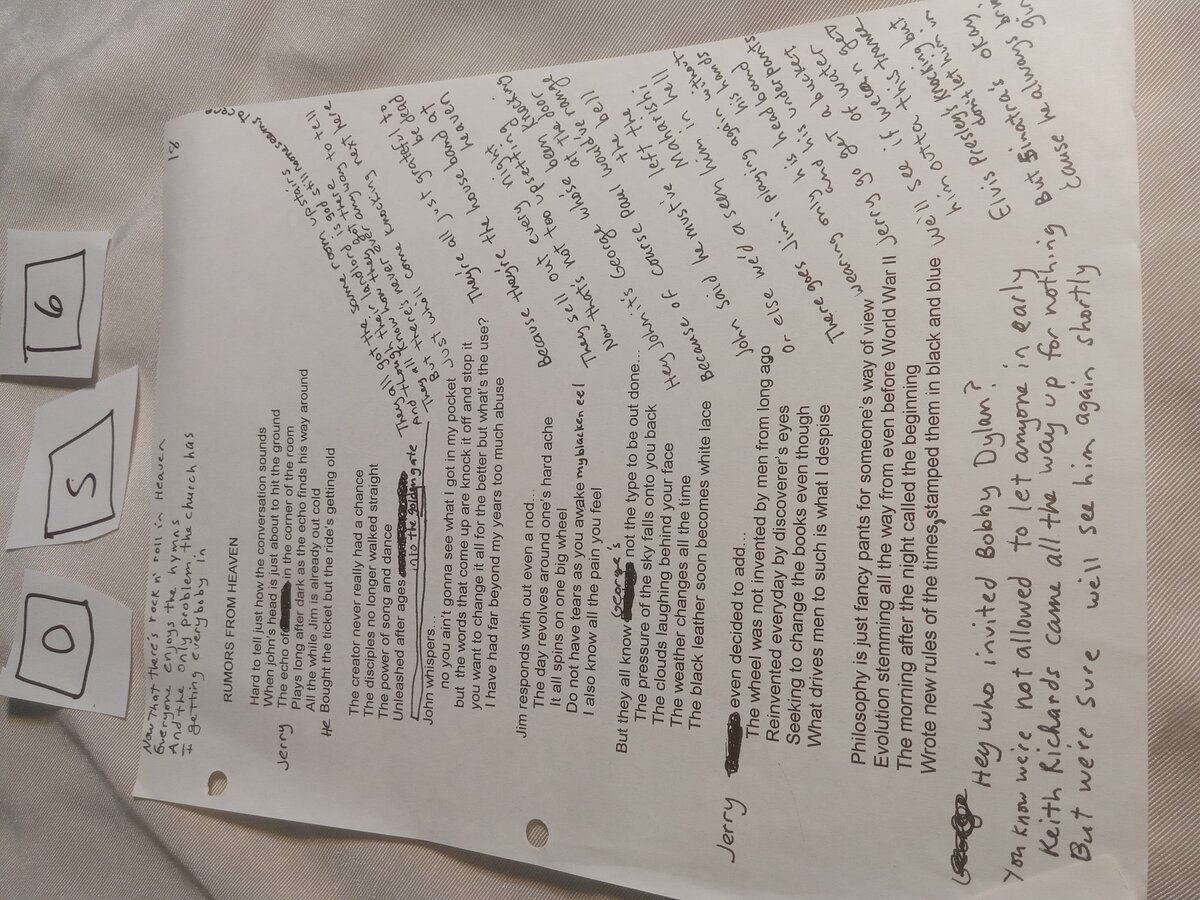 O
S
6
18
Now that there's rock n' roll in Heaven
Everyone enjoys the hymns
And the only problem the church has
is getting everybaby in
RUMORS FROM HEAVEN
Hard to tell just how the conversation sounds
When john's head is just about to hit the ground
Jerry The echo of in the corner of the room
Plays long after dark as the echo finds his way around
All the while Jim is already out cold
He Bought the ticket but the ride's getting old
The creator never really had a chance
The disciples no longer walked straight
The power of song and dance
Unleashed after ages into the golden gate
John whispers...
no you ain't gonna see what I got in my pocket
but the words that come up are knock it off and stop it
you want to change it all for the better but what's the use?
I have had far beyond my years too much abuse
Jim responds with out even a nod...
The day revolves around one's hard ache
It all spins on one big wheel
Do not have tears as you awake my blacken eel
I also know all the pain you feel
But they all know George's not the type to be out done...
The pressure of the sky falls onto you back
The clouds laughing behind your face
The weather changes all the time
The black leather soon becomes white lace
Jerry even decided to add....
The wheel was not invented by men from long ago
Reinvented everyday by discoverer's eyes
Seeking to change the books even though
What drives men to such is what I despise
Philosophy is just fancy pants for someone's way of view
Evolution stemming all the way from even before World War II
The morning after the night called the beginning
Wrote new rules of the times, stamped them in black and blue
They all got the same room upstairs
And though their landlord is god still
They all know how they got there
But there's never ever anyway to tell
Just whall come knocking next here
They're all just gratefel to be dead
Because they're the house band at heaven
They sell out every night
Now that's not too upsetting
Hey John it's George whose been knocking at the door
Because of course Paul would've range the bell
John said he must've left the Maharishi
Or else we'd a seen him in hell
There goes Jimi playing again without his hands
wearing only his headband and his underpants
Jerry go get a bucket of water
We'll see if we can get him outta this trance
Elvis Presley's knocking but don't let him in
But Sinatra's okay
'cause he always
Hey who invited Bobby Dylan?
You know we're not allowed to let anyone in early
Keith Richards came all the way up for nothing
But were sure we'll see him again shortly